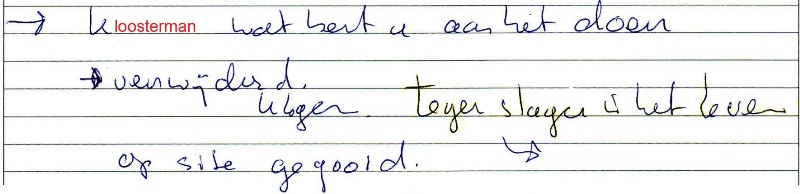 → Kloosterman wat bent u aan het doen
→ verwijderd.
klagen. tegenslagen is het leven
op site gegooid.